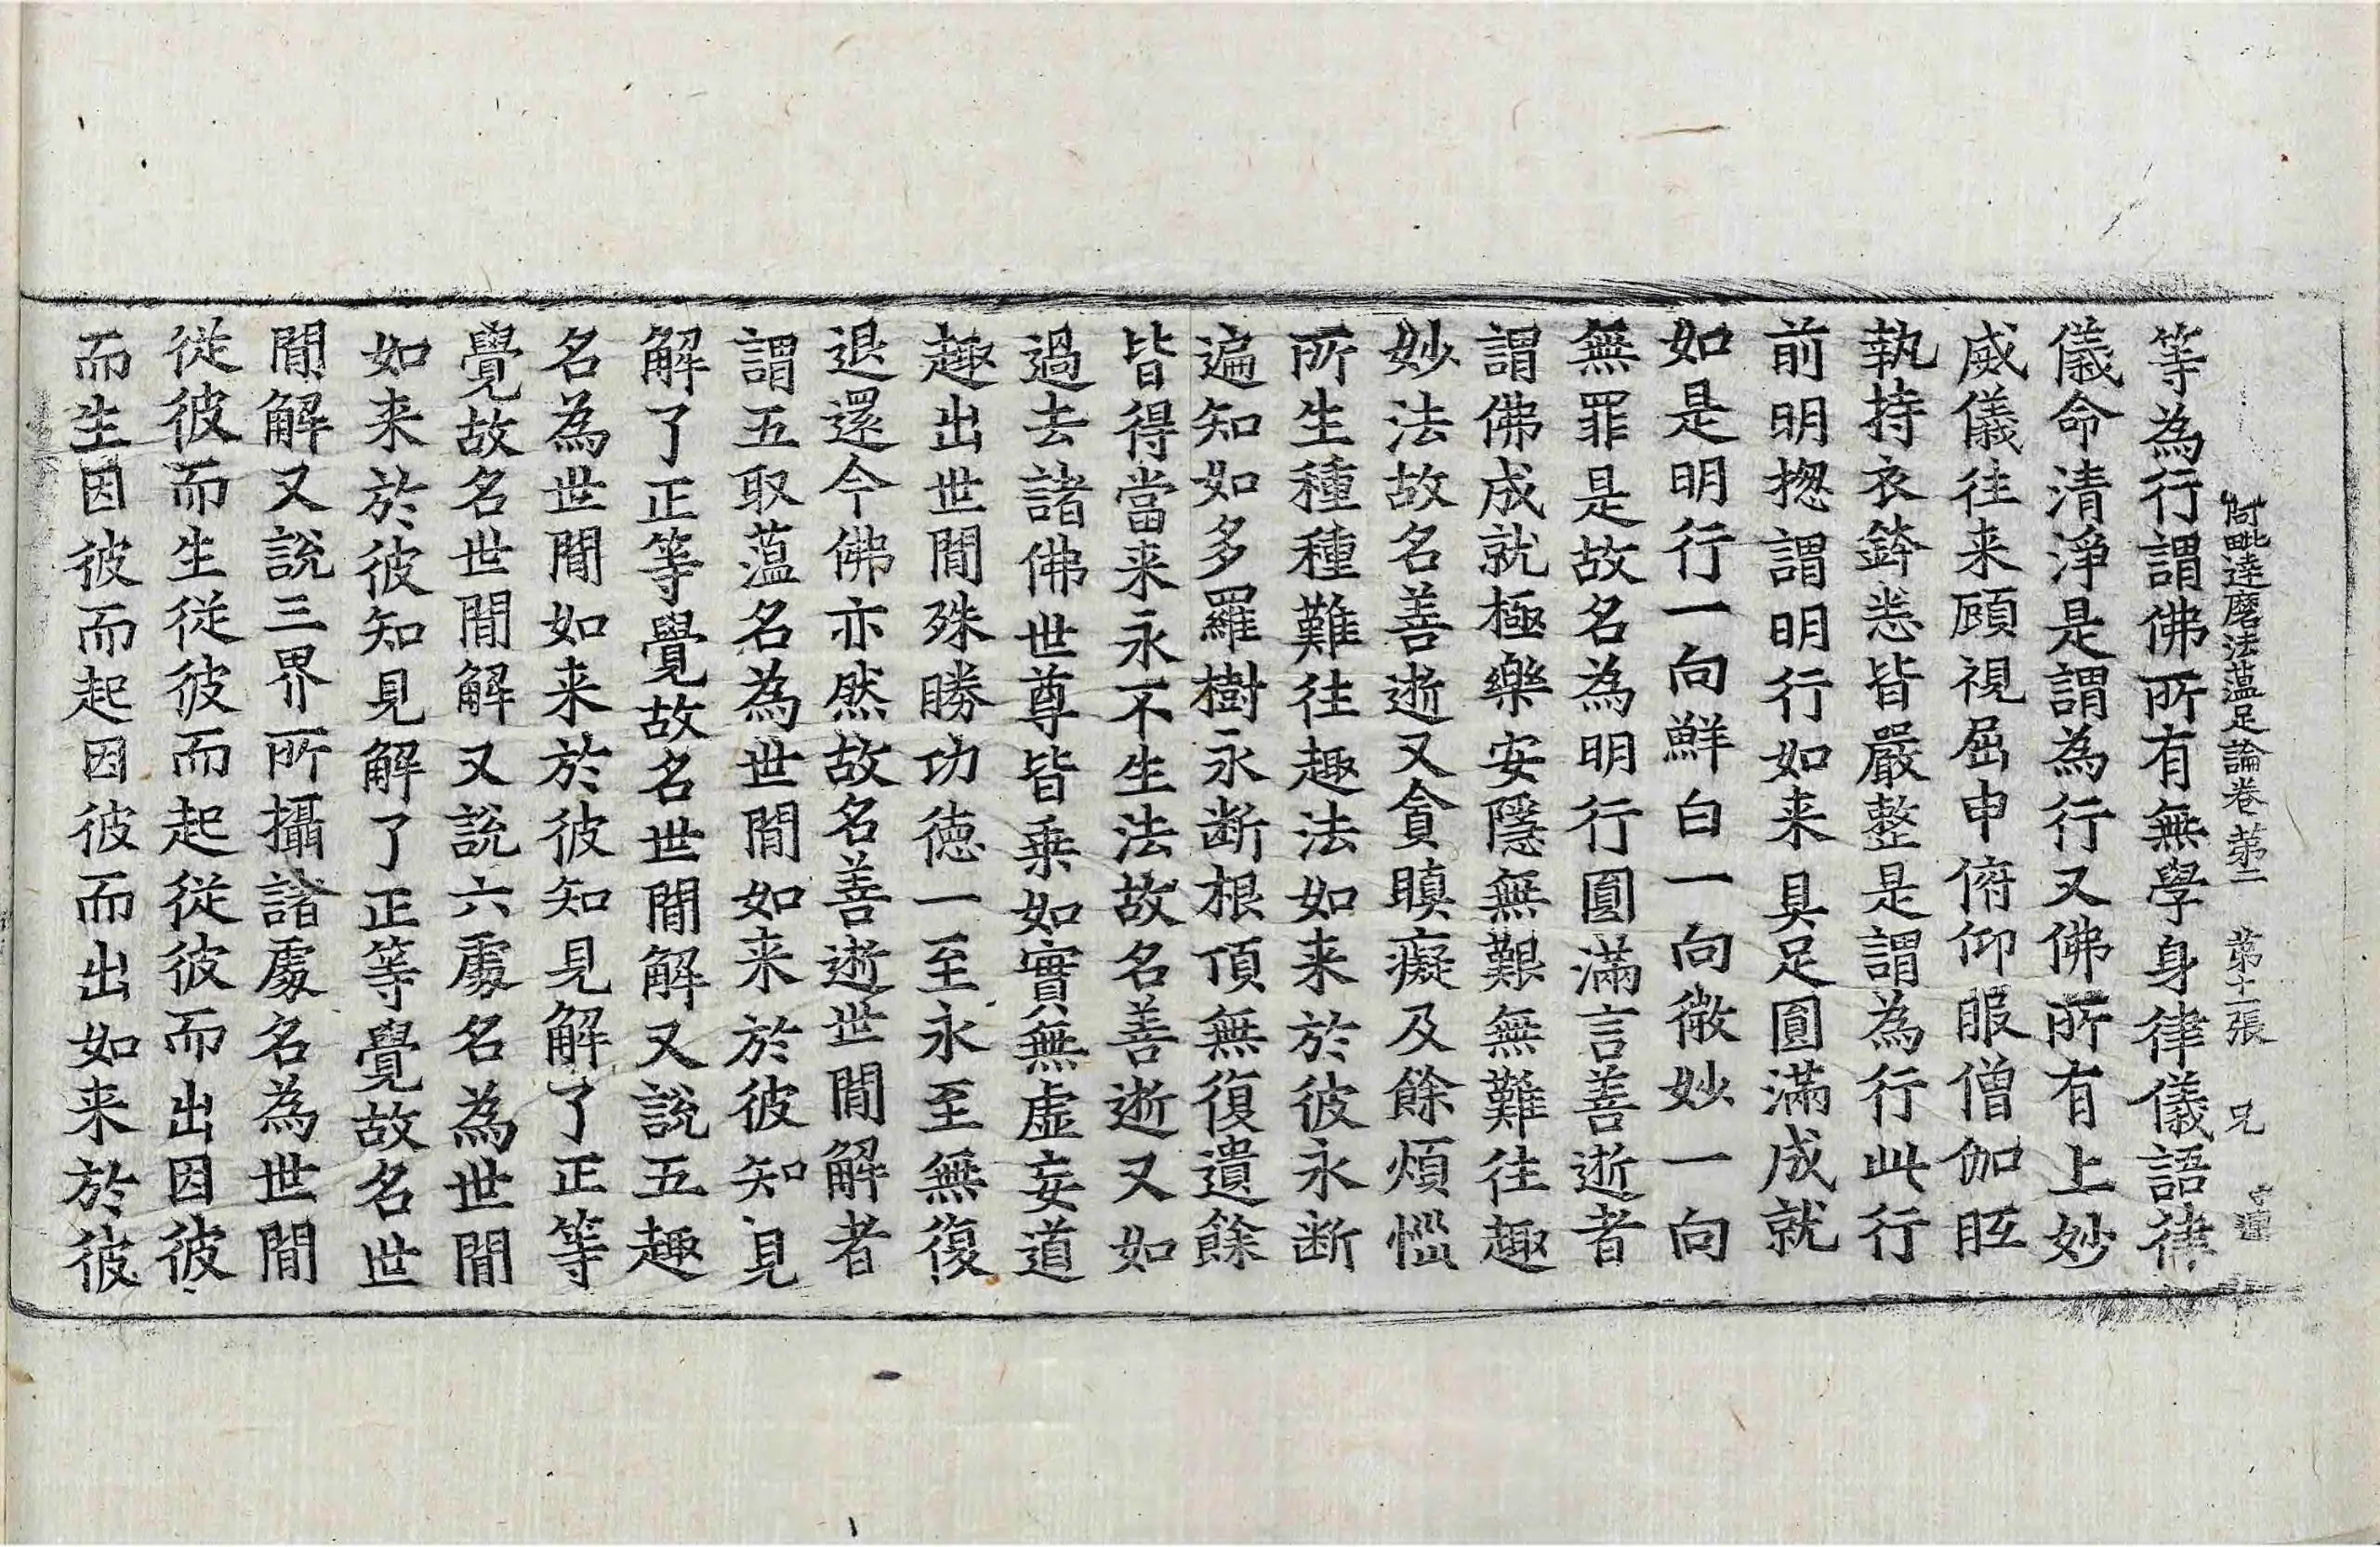 阿毗達磨法蘊足論卷第二 第十二張 兄
等為行謂佛所有無學身律儀語律
儀命清淨是謂為行又佛所有上妙
威儀往来顧視屈申俯仰服僧伽胝
執持衣鉢悉皆嚴整是謂為行此行
前明揔謂明行如来具足圓滿成就
如是明行一向鮮白一向微妙一向
無罪是故名為明行圓滿言善逝者
謂佛成就極樂安隱無艱無難往趣
妙法故名善逝又貪瞋癡及餘煩惱
所生種種難往趣法如来於彼永断
遍知如多羅樹永断根頂無復遺餘
皆得當来永不生法故名善逝又如
過去諸佛世尊皆乗如實無虛妄道
趣出世閒殊勝功德一至永至無復
退還今佛亦然故名善逝世閒解者
謂五取蘊名為世閒如来於彼知見
解了正等覺故名世閒解又說五趣
名為世閒如来於彼知見解了正等
覺故名世閒解又說六處名為世閒
如来於彼知見解了正等覺故名世
閒解又說三界所攝諸處名為世閒
從彼而生從彼而起從彼而出因彼
而生因彼而起因彼而出如来於彼